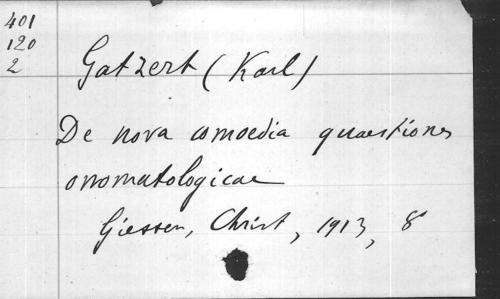 401
120
2
Gatzert (Karl)
De nova comoedia quaestiones
onomatologicae
Giessen, Christ, 1913, 8°